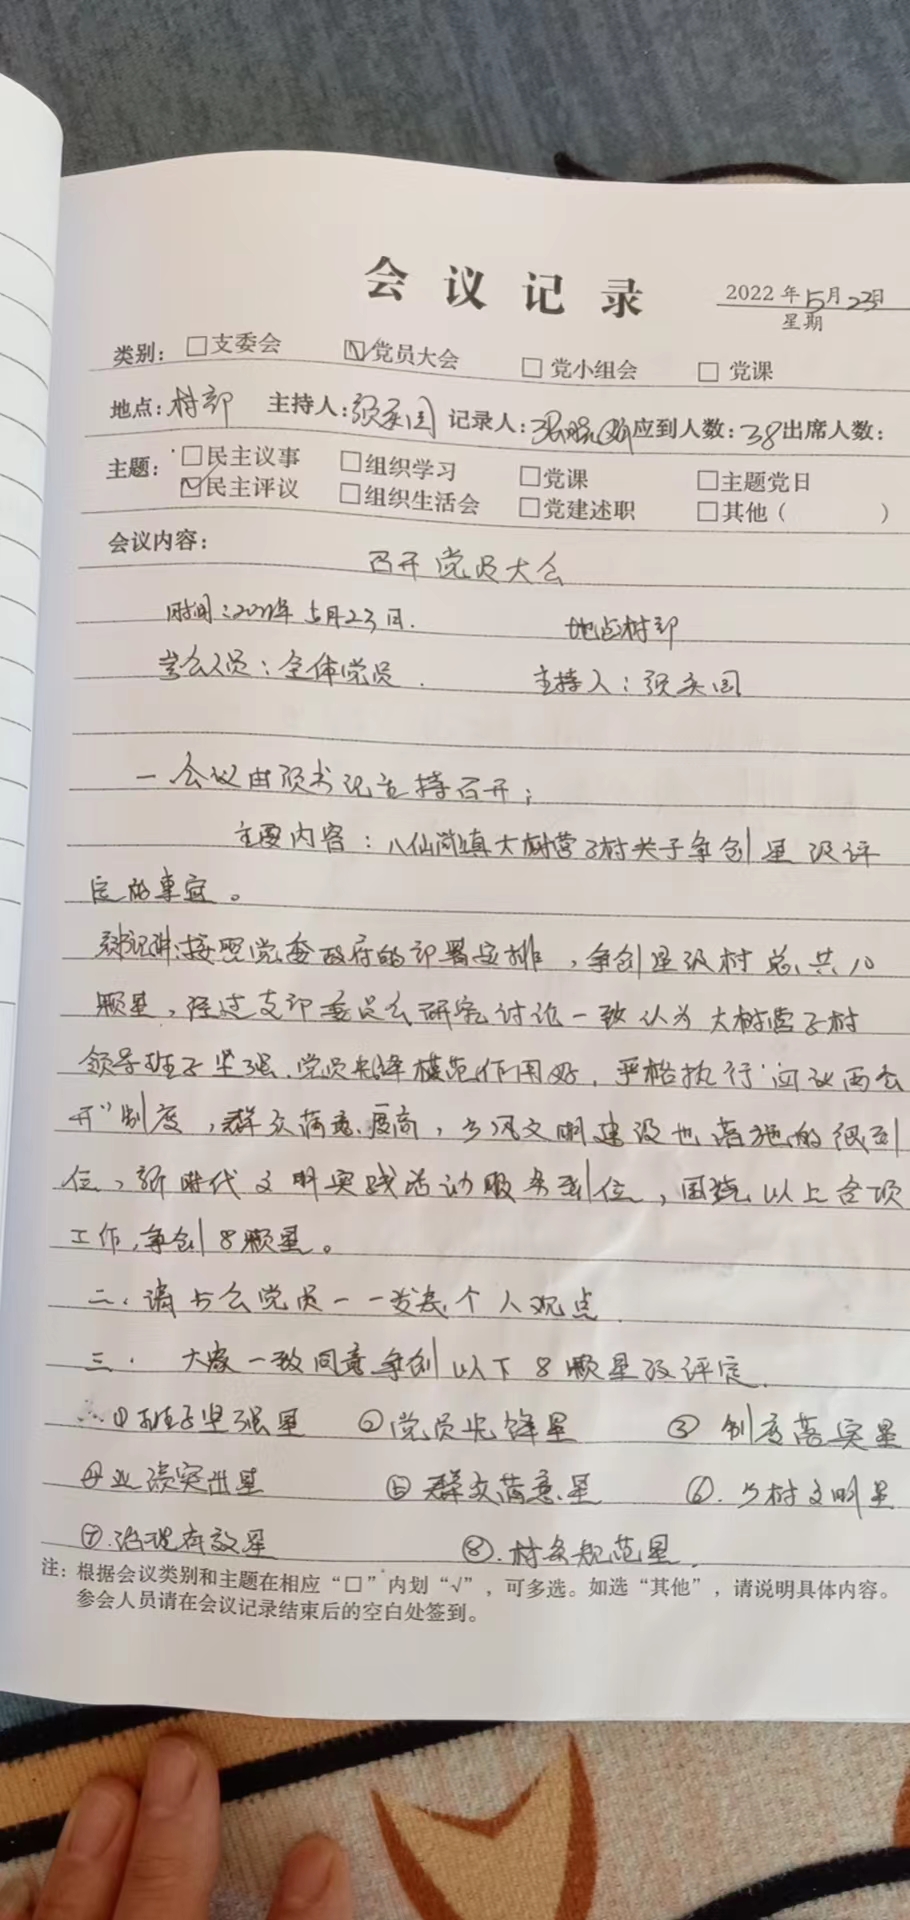 会议记录
2022年5月23日
星期
类别：□支委会 ☑党员大会 □党小组会 □党课
地点：村部 主持人：国 记录人： 应到人数：38 出席人数：
主题：□民主议事 □组织学习 □党课 □主题党日
☑民主评议 □组织生活会 □党建述职 □其他（ ）
会议内容：
召开党员大会
时间：2022年5月23日. 地点村部
参会人员：全体党员. 主持人：国
一.会议由书记主持召开；
主要内容：八仙筒镇大树营子村关于争创星级评
定的事宜。
书记讲：按照党委政府的部署安排，争创星级村总共10
颗星，经过支部委员会研究讨论一致认为大树营子村
领导班子坚强.党员先锋模范作用好，严格执行“四议两公
开”制度，群众满意度高，乡风文明建设也落施的很到
位，新时代文明实践活动服务到位，围绕以上各项
工作，争创8颗星。
二.请与会党员一一发表个人观点.
三. 大家一致同意争创以下8颗星级评定.
①班子坚强星 ②党员先锋星 ③制度落实星
④业绩突出星 ⑤群众满意星 ⑥.乡村文明星
⑦.治理有效星 ⑧.村务规范星.
注：根据会议类别和主题在相应“□”内划“√”，可多选。如选“其他”，请说明具体内容。
参会人员请在会议记录结束后的空白处签到。